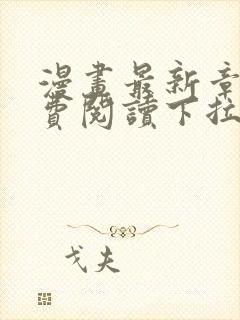 漫畫最新章
費閱讀下拉
戈夫